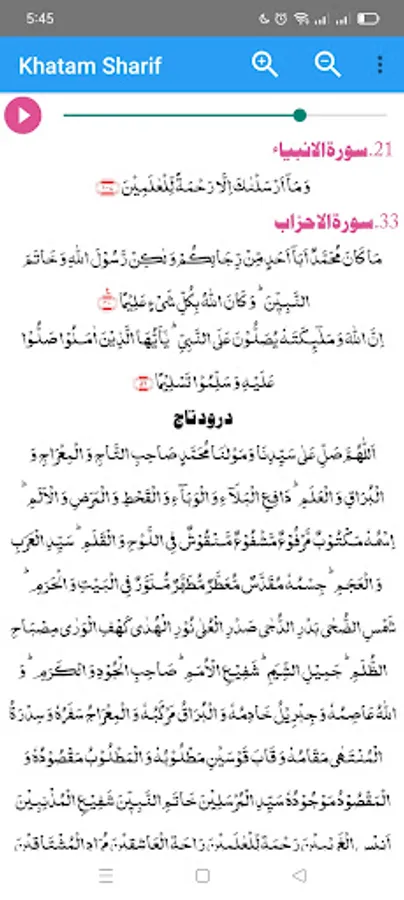 5:45
Khatam Sharif
21.سورة الانبیاء
وَمَآ اَرْسَلْنٰكَ اِلَّا رَحْمَةً لِّلْعٰلَمِيْنَ
33.سورة الاحزاب
مَا كَانَ مُحَمَّدٌ اَبَآ اَحَدٍ مِّنْ رِّجَالِكُمْ وَلٰكِنْ رَّسُوْلَ اللّٰهِ وَخَاتَمَ
النَّبِيّٖنَ ؕ وَكَانَ اللّٰهُ بِكُلِّ شَىْءٍ عَلِيْمًا
اِنَّ اللّٰهَ وَمَلٰٓئِكَتَهٗ يُصَلُّوْنَ عَلَى النَّبِىِّ ؕ يٰٓاَيُّهَا الَّذِيْنَ اٰمَنُوْا صَلُّوْا
عَلَيْهِ وَسَلِّمُوْا تَسْلِيْمًا ۝۵۶
درود تاج
اَللّٰهُمَّ صَلِّ عَلٰى سَيِّدِنَا وَمَوْلٰنَا مُحَمَّدٍ صَاحِبِ التَّاجِ وَالْمِعْرَاجِ وَ
الْبُرَاقِ وَالْعَلَمِ ؕ دَافِعِ الْبَلَآءِ وَالْوَبَآءِ وَالْقَحْطِ وَالْمَرَضِ وَالْاَلَمِ ؕ
اِسْمُهٗ مَكْتُوْبٌ مَّرْفُوْعٌ مَّشْفُوْعٌ مَّنْقُوْشٌ فِى اللَّوْحِ وَالْقَلَمِ ؕ سَيِّدِ الْعَرَبِ
وَالْعَجَمِ ؕ جِسْمُهٗ مُقَدَّسٌ مُّعَطَّرٌ مُّطَهَّرٌ مُّنَوَّرٌ فِى الْبَيْتِ وَالْحَرَمِ ؕ
شَمْسِ الضُّحٰى بَدْرِ الدُّجٰى صَدْرِ الْعُلٰى نُوْرِ الْهُدٰى كَهْفِ الْوَرٰى مِصْبَاحِ
الظُّلَمِ ؕ جَمِيْلِ الشِّيَمِ ؕ شَفِيْعِ الْاُمَمِ ؕ صَاحِبِ الْجُوْدِ وَالْكَرَمِ ؕ وَ
اللّٰهُ عَاصِمُهٗ وَجِبْرِيْلُ خَادِمُهٗ وَالْبُرَاقُ مَرْكَبُهٗ وَالْمِعْرَاجُ سَفَرُهٗ وَسِدْرَةُ
الْمُنْتَهٰى مَقَامُهٗ وَقَابَ قَوْسَيْنِ مَطْلُوْبُهٗ وَالْمَطْلُوْبُ مَقْصُوْدُهٗ وَ
الْمَقْصُوْدُ مَوْجُوْدُهٗ سَيِّدِ الْمُرْسَلِيْنَ خَاتَمِ النَّبِيّٖنَ شَفِيْعِ الْمُذْنِبِيْنَ
اَنِيْسِ الْغَرِيْبِيْنَ رَحْمَةٍ لِّلْعٰلَمِيْنَ رَاحَةِ الْعَاشِقِيْنَ مُرَادِ الْمُشْتَاقِيْنَ